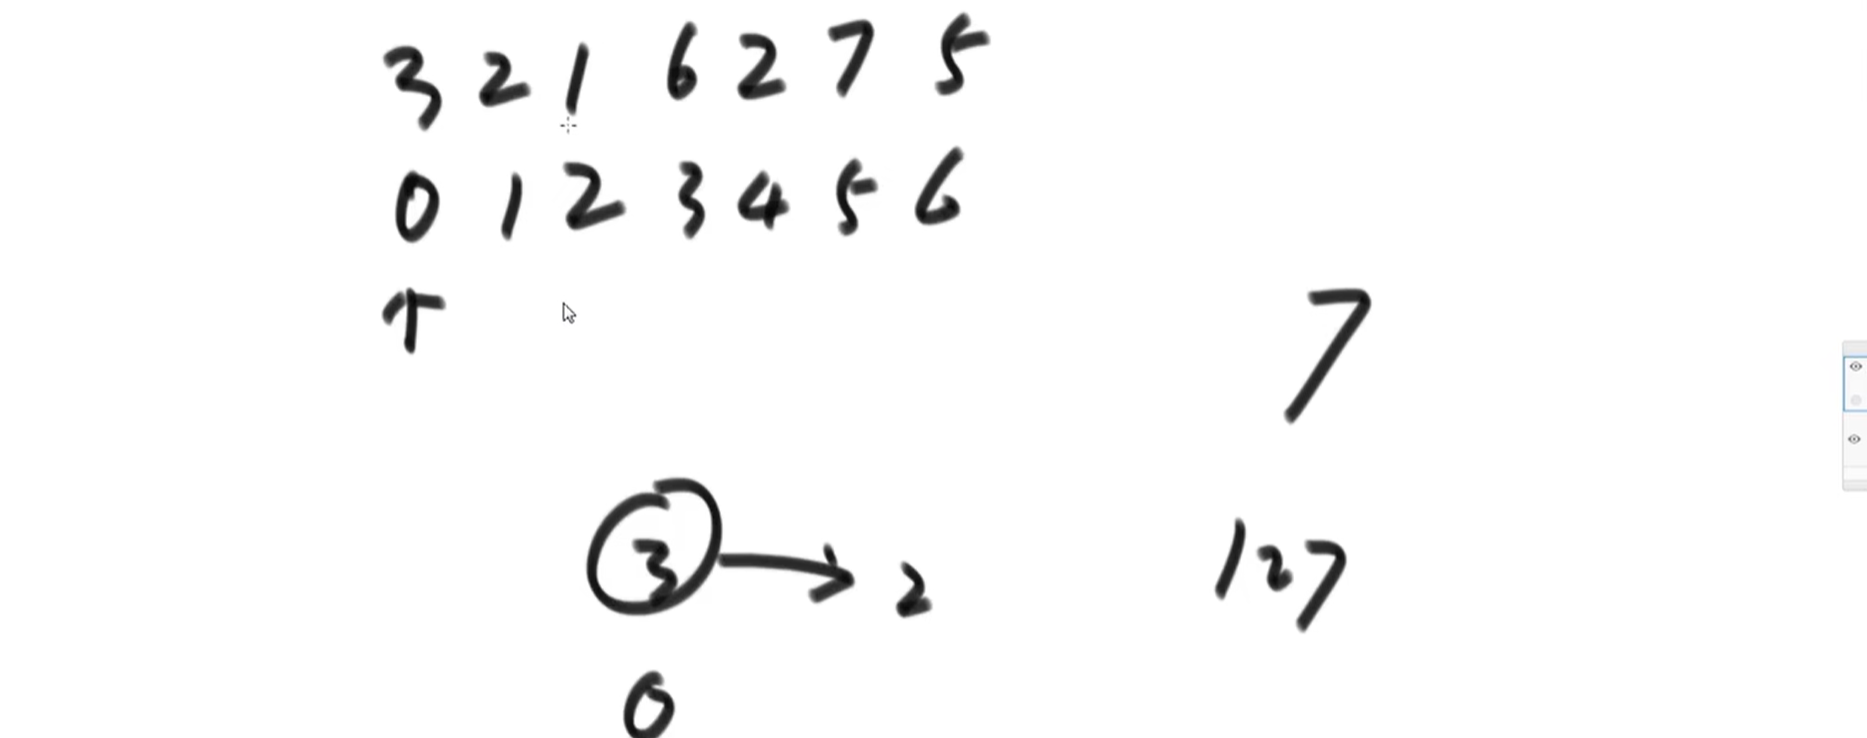 3 2 1 6 2 7 5
0 1 2 3 4 5 6
↑
7
3 → 2
127
0